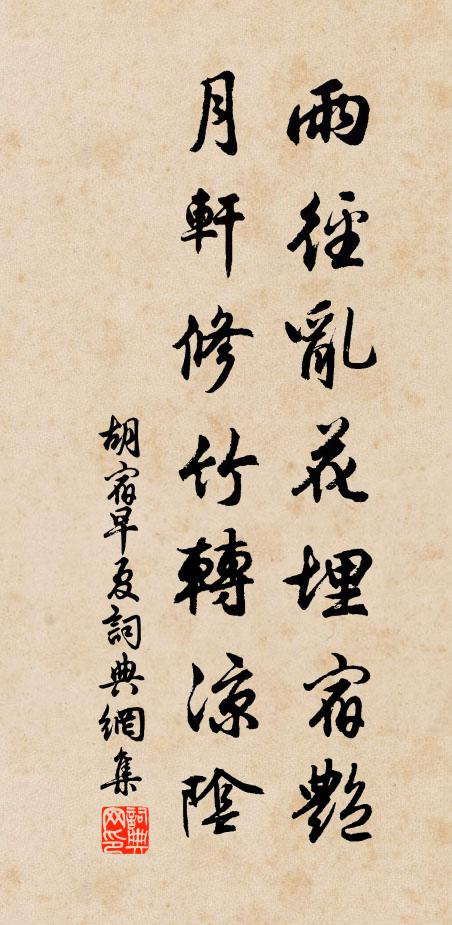 雨徑亂花埋宿艷
月軒修竹轉涼陰
胡宿早夏詞典網集
詞典網印